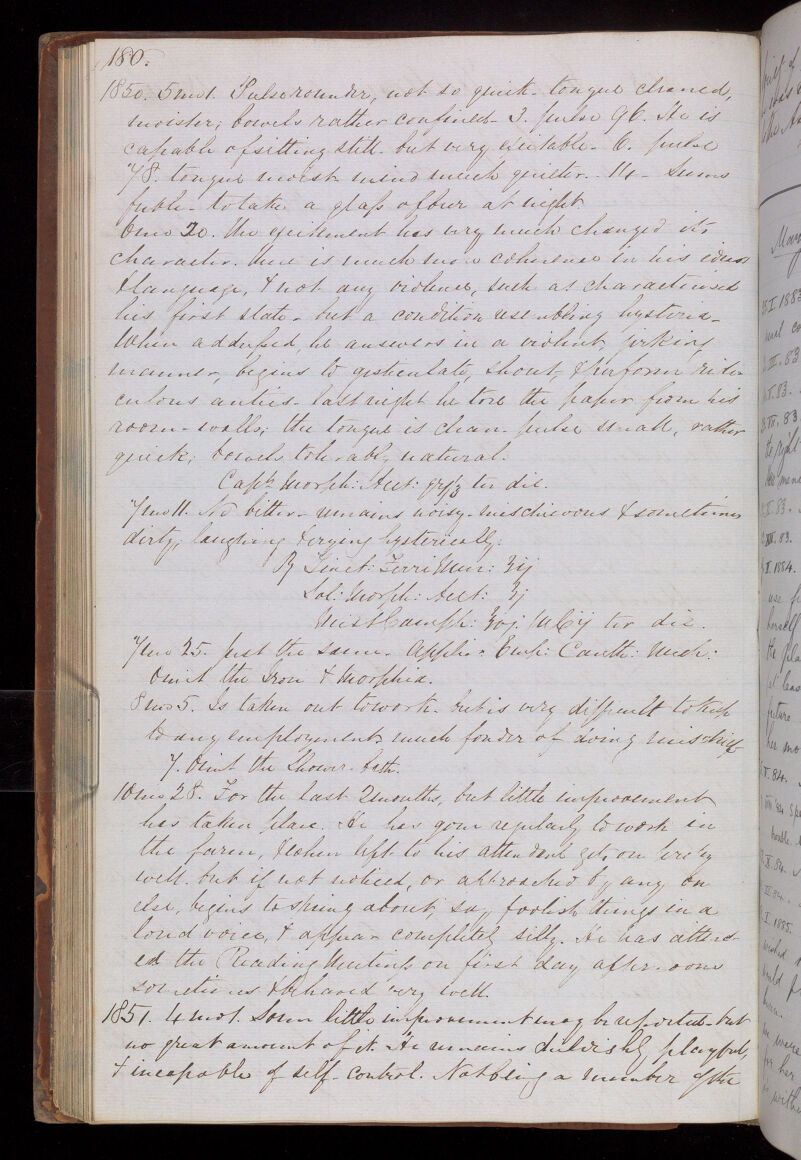 180.
1850. 5 mo 1. Pulse rounder, not so quick. tongue cleaned,
moister; bowels rather confined. 3. pulse 96. He is
capable of sitting still. but very excitable. 6. pulse
78. tongue moist. mind much quieter. 14. Seems
feeble. to take a glass of beer at night.
6 mo 20. The excitement has very much changed its
character. there is much more coherence in his ideas
& language, & not any violence, such as characterised
his first state. but a condition resembling hysteria.
When addressed, he answers in a violent, jerking
manner, begins to gesticulate, shout, & perform ridi-
culous antics. last night he tore the paper from his
room-walls; the tongue is clean. pulse small, rather
quick; bowels tolerably natural.
Capt. Morph: Acet: gr 1/3 ter die.
7 mo 11. No better. remains noisy. mischievous & sometimes
dirty; laughing & crying hysterically.
R Tinct: Ferri Mur: ʒij
Sol: Morph: Acet: ʒj
Mist Camph: ter die.
7 mo 25. Just the same. Applic. Emp: Canth: Nuch:
Omit the Iron & Morphia.
8 mo 5. Is taken out to work. but is very difficult to keep
to any employment. much fonder of doing mischief
7. Omit the Shower-bath.
10 mo 28. For the last 2 months, but little improvement
has taken place. He has gone regularly to work in
the farm, & when left to his attendant gets on pretty
well. but if not noticed, or approached by any one
else, begins to spring about, say foolish things in a
loud voice, & appear completely silly. He has attend-
ed the Reading Meetings on first day afternoons
sometimes & behaved very well.
1851. 4 mo 1. Some little improvement may be reported. but
no great amount of it. He remains childishly playful,
& incapable of self-control. Not being a member of the